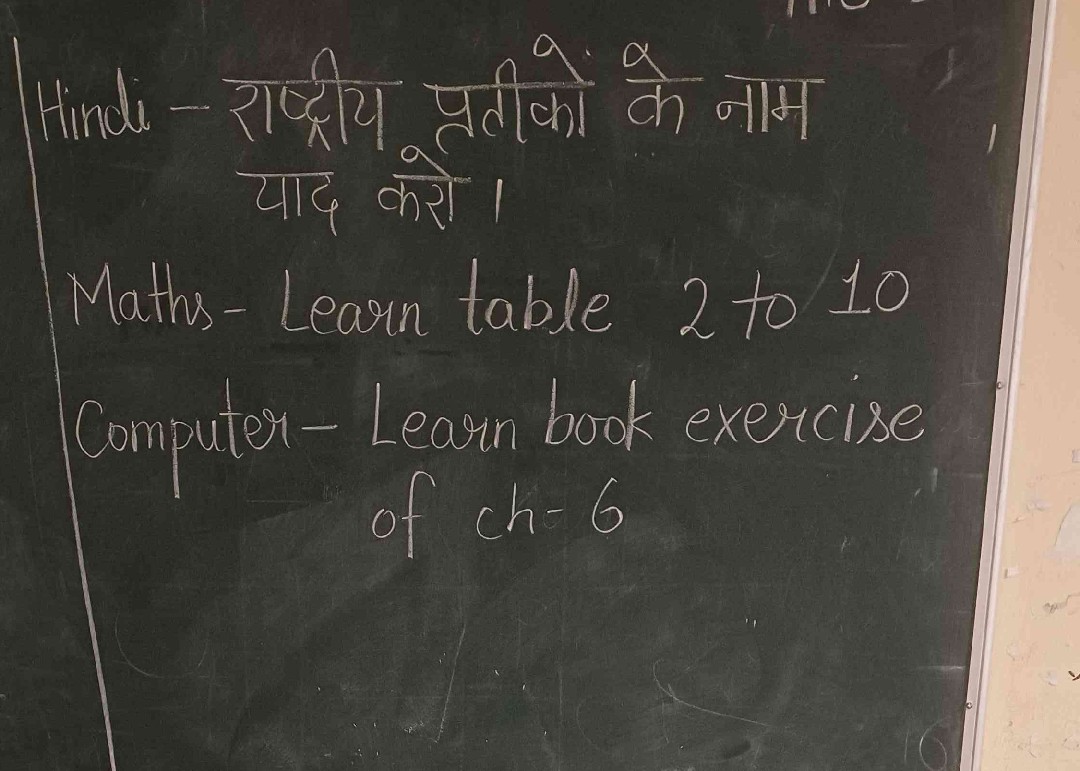 Hindi - राष्ट्रीय प्रतीकों के नाम
याद करो ।
Maths - Learn table 2 to 10
Computer - Learn book exercise
of ch- 6